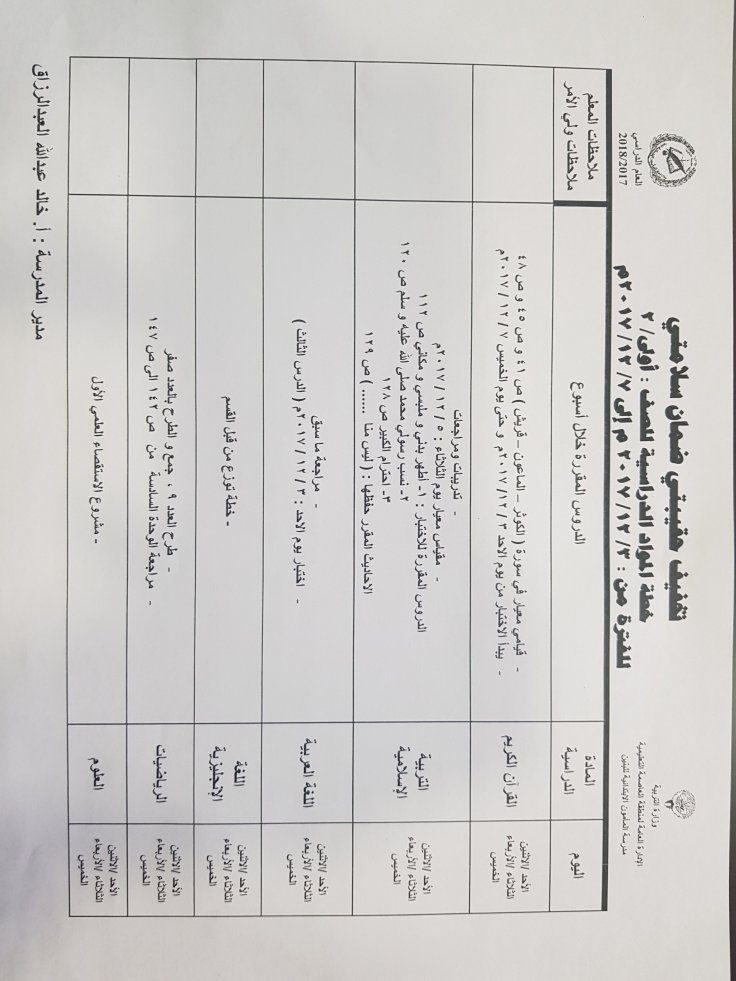 وزارة التربية
الإدارة العامة لمنطقة العاصمة التعليمية
مدرسة المأمون الابتدائية للبنين
تخفيف حقيبتي ضمان سلامتي
خطة المواد الدراسية للصف : أولى/ ٢
للفترة من : ٣/ ١٢/ ٢٠١٧ م إلى ٧/ ١٢/ ٢٠١٧م
العام الدراسي
2018/2017
اليوم
المادة
الدراسية
الدروس المقررة خلال أسبوع
ملاحظات المعلم
ملاحظات ولي الأمر
الأحد /الاثنين
الثلاثاء /الأربعاء
الخميس
القرآن الكريم
- قياسي معيار في سورة ( الكوثر – الماعون – قريش ) ص ٤١ و ص ٤٥ و ص ٤٨
- يبدأ الاختبار من يوم الاحد ٣ / ١٢ / ٢٠١٧م و حتى يوم الخميس ٧ / ١٢ / ٢٠١٧م
الأحد /الاثنين
الثلاثاء /الأربعاء
الخميس
التربية
الإسلامية
- تدريبات ومراجعات
- مقياس معيار يوم الثلاثاء : ٥ / ١٢ / ٢٠١٧م
الدروس المقررة للاختبار : ١- أطهر بدني و ملبسي و مكاني ص ١١٢
٢- نسب رسولي محمد صلى الله عليه و سلم ص ١٢٠
٣- احترام الكبير ص ١٢٨
الاحاديث المقرر حفظها : ( ليس منا ...... ) ص ١٢٩
الأحد /الاثنين
الثلاثاء /الأربعاء
الخميس
اللغة العربية
- مراجعة ما سبق
- اختبار يوم الاحد : ٣ / ١٢ / ٢٠١٧م ( الدرس الثالث )
الأحد /الاثنين
الثلاثاء /الأربعاء
الخميس
اللغة
الإنجليزية
- خطة توزع من قبل القسم
الأحد /الاثنين
الثلاثاء /الأربعاء
الخميس
الرياضيات
- طرح العدد ٩ ، جمع و الطرح بالعدد صفر
- مراجعة الوحدة السادسة من ص ١٤٢ الى ص ١٤٧
الأحد /الاثنين
الثلاثاء /الأربعاء
الخميس
العلوم
- مشروع الاستقصاء العلمي الأول
مدير المدرسة : أ. خالد عبدالله العبدالرزاق